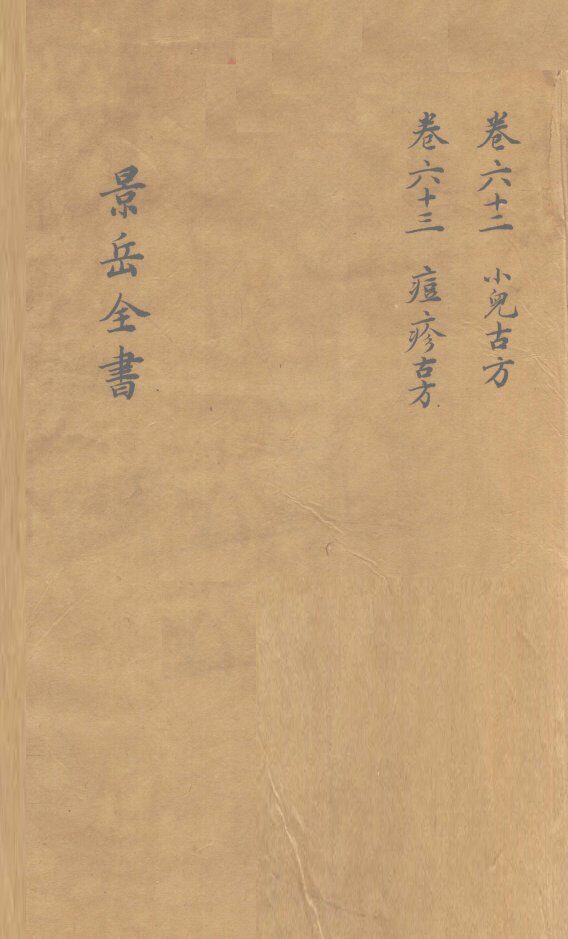 卷六十二　小兒古方
卷六十三　痘疹古方
景岳全書